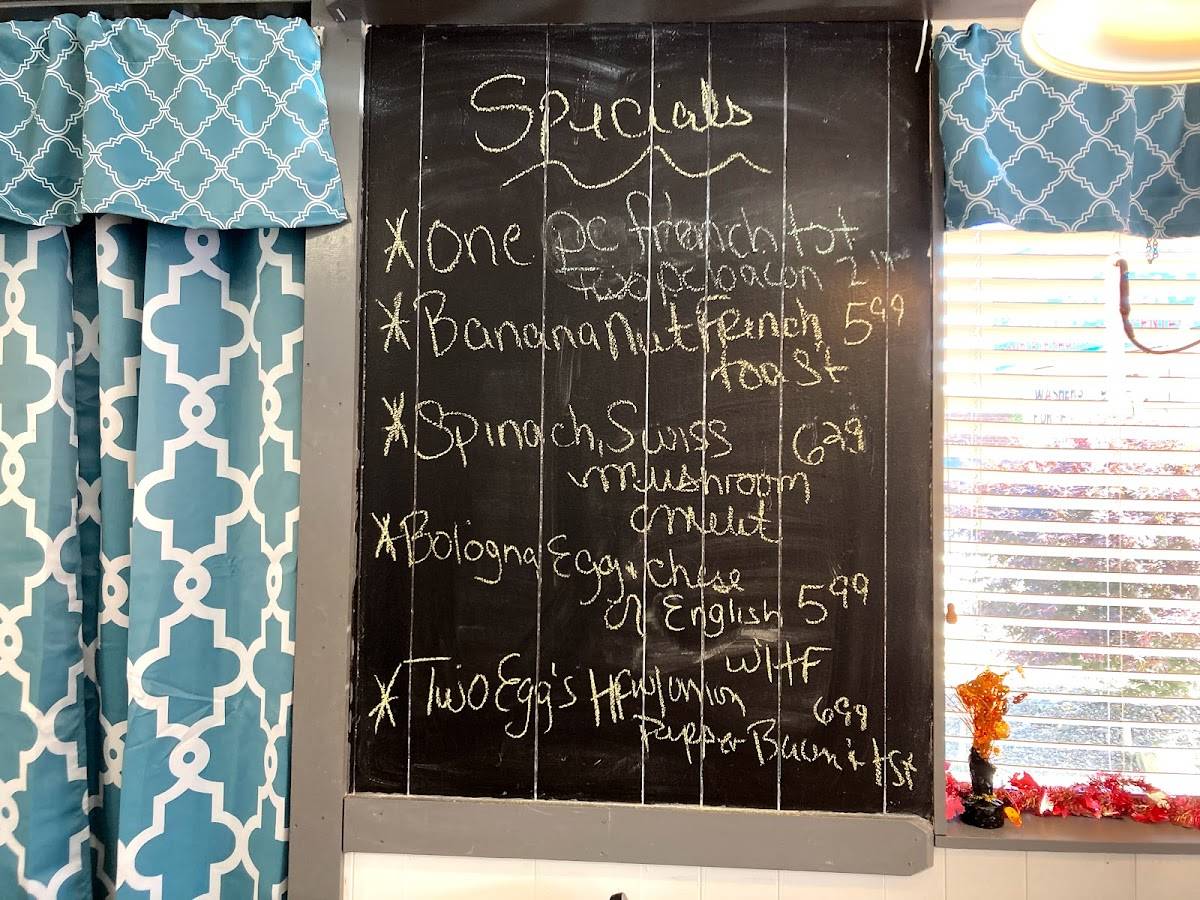 Specials
* One pc french tst
Two pc bacon 2
* Banana Nut French 5 99
toast
* Spinach, Swiss 6 29
mushroom
omelet
* Bologna Egg + chese
on English 5 99
w HF
* Two Egg's HF w/onion
Pepper Bacon + tst 6 99